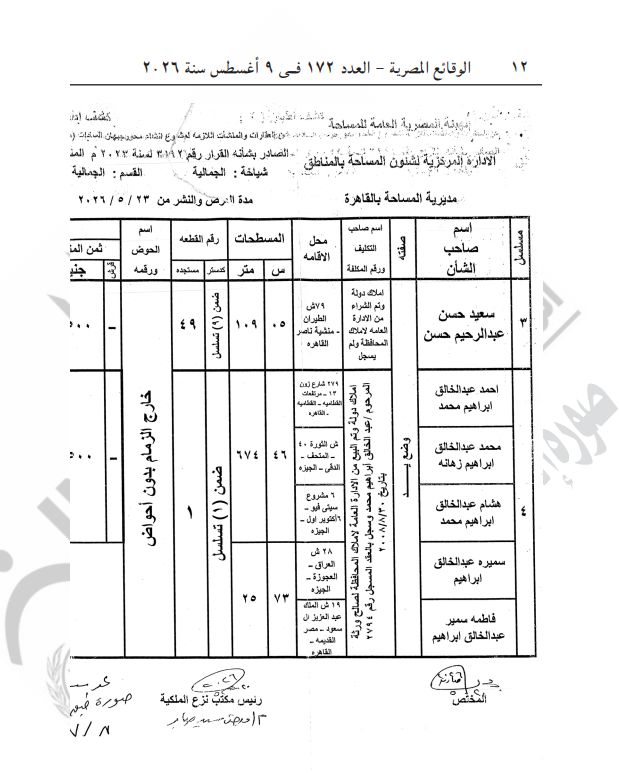 ١٢ الوقائع المصرية – العدد ١٧٢ فى ٩ أغسطس سنة ٢٠٢٦
المصرية العامة للمساحة
الادارة المركزية لشئون المساحة بالمناطق
مديرية المساحة بالقاهرة
العقارات والمنشآت اللازمه لمشروع انشاء محور جيهان السادات
الصادر بشأنه القرار رقم ٣١٩٢ لسنة ٢٠٢٣ م
شياخة : الجمالية القسم : الجمالية
مدة العرض والنشر من ٢٣ / ٥ / ٢٠٢٦
مسلسل
اسم صاحب الشأن
صفته
اسم صاحب التكليف ورقم المكلفة
محل الاقامه
المسطحات
س
متر
رقم القطعه
كدستر
مستجده
اسم الحوض ورقمه
ثمن
قرش
٣
سعيد حسن عبدالرحيم حسن
وضع يد
املاك دولة
وتم الشراء
من الادارة
العامه لاملاك
المحافظة ولم
يسجل
٧٩ش
الطيران
- منشية ناصر
القاهره
٠٥
١٠٩
ضمن (١) تسلسل
٤٩
خارج الزمام بدون أحواض
-
٥٠٠
٤
احمد عبدالخالق ابراهيم محمد
محمد عبدالخالق ابراهيم زهانه
هشام عبدالخالق ابراهيم محمد
سميره عبدالخالق ابراهيم
فاطمه سمير عبدالخالق ابراهيم
املاك دولة وتم البيع من الادارة العامة لاملاك المحافظة لصالح ورثة
المرحوم /عبد الخالق ابراهيم محمد وسجل بالعقد المسجل رقم ٢٧٩٤
بتاريخ ٢٠٠٨/٨/٣٠
٢٧٩ شارع زون
١٣ - مرتفعات
القطاميه - القطاميه
- القاهره
ش الثورة ٤٠
- المتحف -
الدقى - الجيزه
٦ مشروع
سيتى فيو -
٦أكتوبر اول -
الجيزه
٢٨ ش
العراق -
العجوزة -
الجيزه
١٩ ش الملك
عبد العزيز ال
سعود - مصر
القديمه -
القاهره
٤٦
٦٧٤
٧٣
٢٥
ضمن (١) تسلسل
١
-
٥٠٠
المختص
رئيس مكتب نزع الملكية